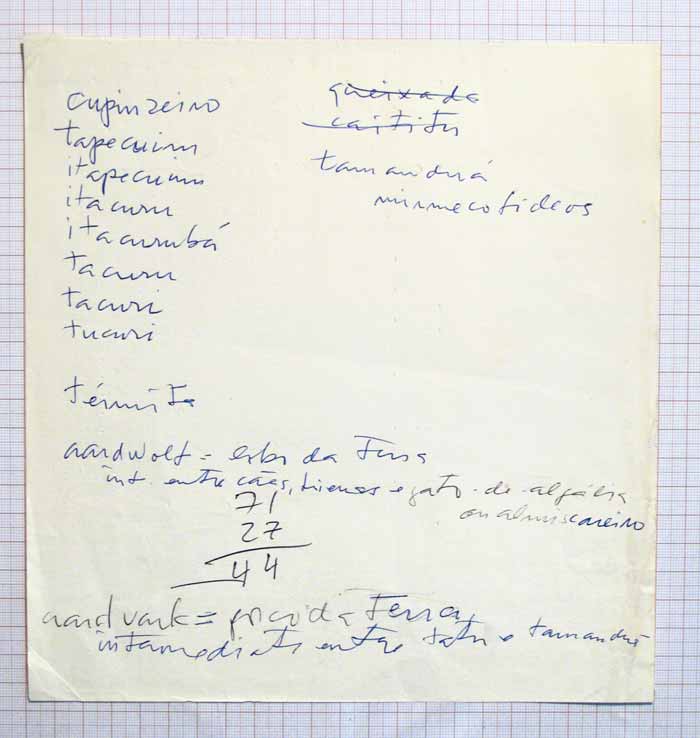 cupinzeiro
tapecuim
itapecuim
itacuru
itacurubá
tacuru
tacuri
tucuri
térmita
queixada
caititu
tamanduá
mirmecofideos
aardwolf = lobo da Terra
int. entre cães, hienas e gato-de-algália
ou almiscareiro
71
27
44
aardvark = porco da Terra,
intermediate entre tatu e tamanduá